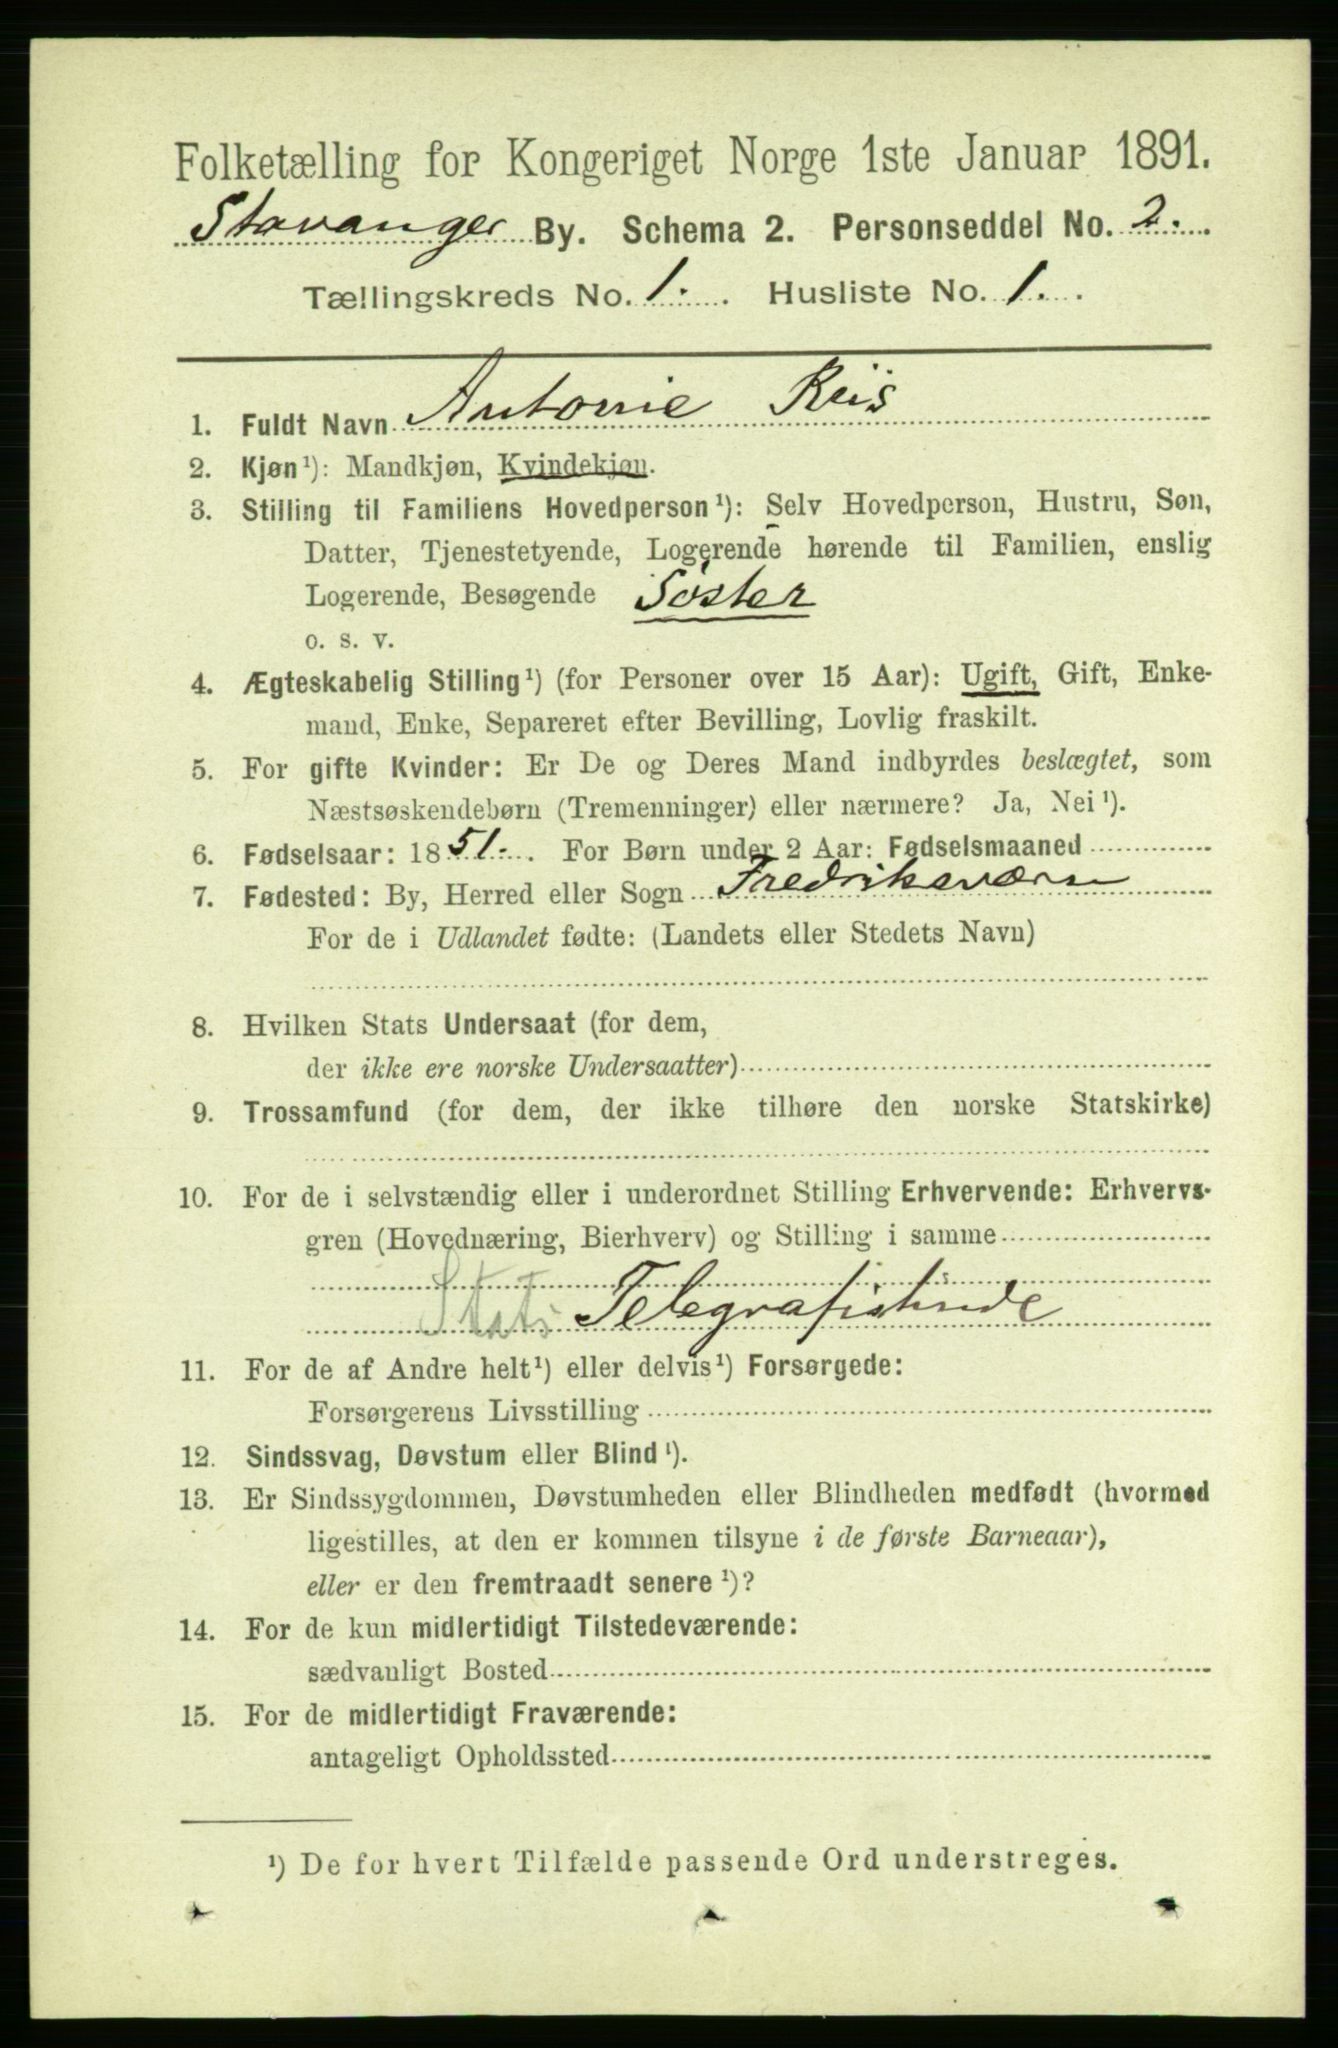 Folketælling for Kongeriget Norge 1ste Januar 1891.
Stavanger By. Schema 2. Personseddel No. 2.
Tællingskreds No. 1. Husliste No. 1.
1. Fuldt Navn Antonie Reis
2. Kjøn¹): Mandkjøn, Kvindekjøn.
3. Stilling til Familiens Hovedperson¹): Selv Hovedperson, Hustru, Søn,
Datter, Tjenestetyende, Logerende hørende til Familien, enslig
Logerende, Besøgende Söster
o. s. v.
4. Ægteskabelig Stilling¹) (for Personer over 15 Aar): Ugift, Gift, Enke-
mand, Enke, Separeret efter Bevilling, Lovlig fraskilt.
5. For gifte Kvinder: Er De og Deres Mand indbyrdes beslægtet, som
Næstsøskendebørn (Tremenninger) eller nærmere? Ja, Nei¹).
6. Fødselsaar: 1851. For Børn under 2 Aar: Fødselsmaaned
7. Fødested: By, Herred eller Sogn Fredriksværn
For de i Udlandet fødte: (Landets eller Stedets Navn)
8. Hvilken Stats Undersaat (for dem,
der ikke ere norske Undersaatter)
9. Trossamfund (for dem, der ikke tilhøre den norske Statskirke)
10. For de i selvstændig eller i underordnet Stilling Erhvervende: Erhvervs-
gren (Hovednæring, Bierhverv) og Stilling i samme
Stats Telegrafistinde
11. For de af Andre helt¹) eller delvis¹) Forsørgede:
Forsørgerens Livsstilling
12. Sindssvag, Døvstum eller Blind¹).
13. Er Sindssygdommen, Døvstumheden eller Blindheden medfødt (hvormed
ligestilles, at den er kommen tilsyne i de første Barneaar),
eller er den fremtraadt senere¹)?
14. For de kun midlertidigt Tilstedeværende:
sædvanligt Bosted
15. For de midlertidigt Fraværende:
antageligt Opholdssted
¹) De for hvert Tilfælde passende Ord understreges.